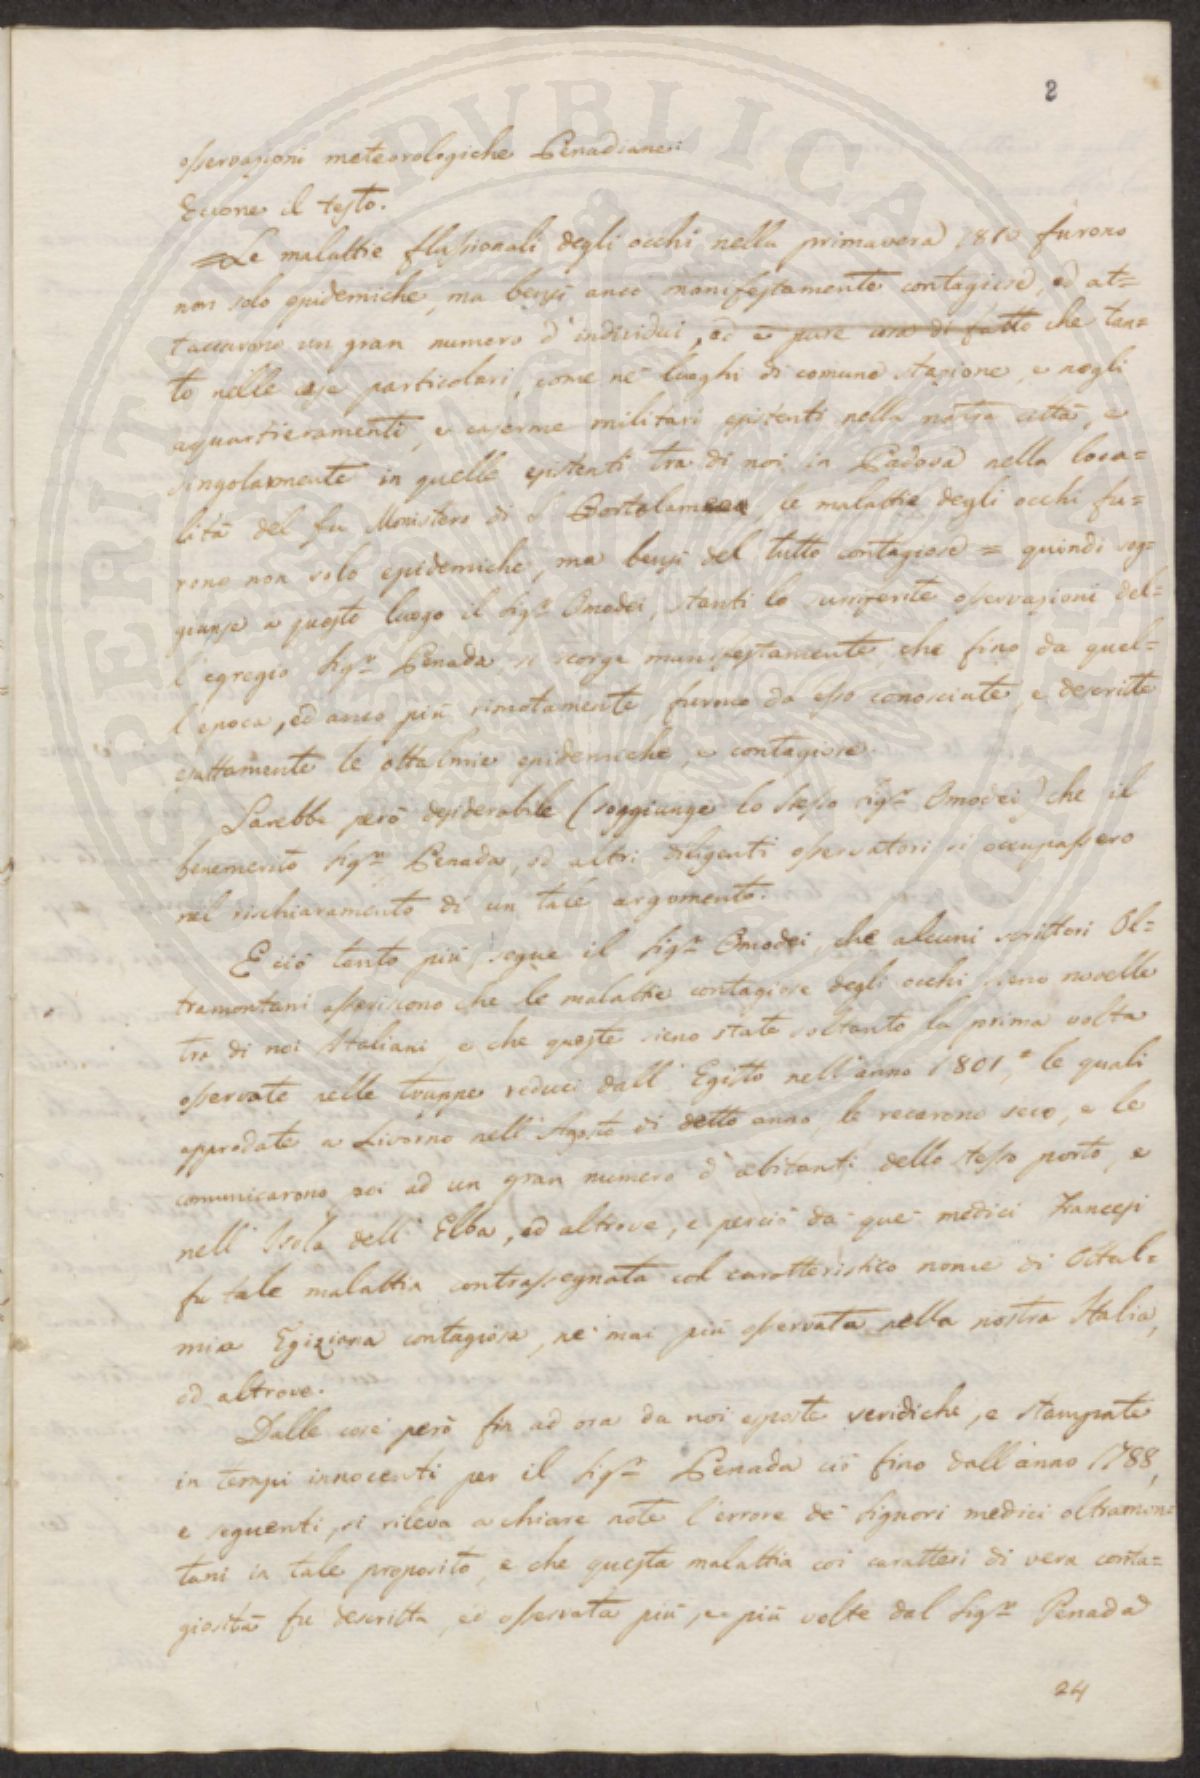 2
osservazioni meteorologiche Penadiane:
Eccone il testo.
=Le malattie flussionali degli occhi nella primavera 1810 furono
non solo epidemiche, ma bensì anco manifestamente contagiose, ed at=
taccarono un gran numero d'individui, ed è pure cosa di fatto che tan=
to nelle case particolari, come ne' luoghi di comune stazione, e negli
aquartieramenti, e caserme militari esistenti nella nostra città, e
singolarmente in quelle esistenti tra di noi in Padova nella loca=
lità del fu Monistero di S. Bortolameo, le malattie degli occhi fu=
rono non solo epidemiche, ma bensì del tutto contagiose = quindi sog=
giunse a questo luogo il Sig.r Omodei, stanti le surriferite osservazioni del=
l'egregio Sig.r Penada, si scorge manifestamente che fino da quel=
l'epoca, ed anco più rimotamente furono da esso conosciute, e descritte
esattamente le ottalmie epidemiche, e contagiose.
Sarebbe però desiderabile (soggiunge lo stesso Sig.r Omodei) che il
benemerito Sig.r Penada, ed altri diligenti osservatori si occupassero
nel rischiaramento di un tale argomento.
E ciò tanto più, segue il Sig.r Omodei, che alcuni scrittori Ol=
tramontani asseriscono che le malattie contagiose degli occhi sieno novelle
tra di noi Italiani, e che queste sieno state soltanto la prima volta
osservate nelle truppe reduci dall'Egitto nell'anno 1801, le quali
approdate a Livorno nell'Agosto di detto anno, le recarono seco, e le
comunicarono poi ad un gran numero d'abitanti dello stesso porto, e
nell'Isola dell'Elba, ed altrove, e perciò da que' medici Francesi
fu tale malattia contrassegnata col caratteristico nome di Ottal=
mia Egiziana contagiosa, nè mai più osservata nella nostra Italia,
ed altrove.
Dalle cose però fin ad ora da noi esposte veridiche, e stampate
in tempi innocenti per il Sig.r Penada ciò fino dall'anno 1788,
e seguenti, si rileva a chiare note l'errore de' Signori medici oltramon=
tani in tale proposito, e che questa malattia coi caratteri di vera conta=
giosità fu descritta, ed osservata più, e più volte dal Sig.r Penada
24